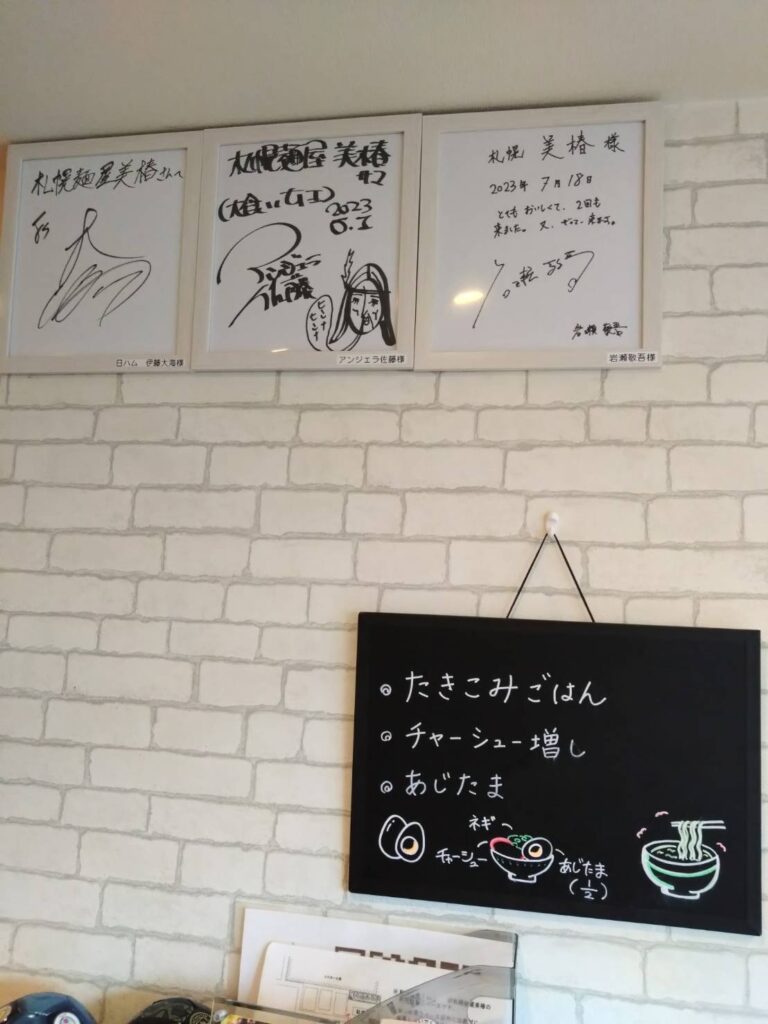 札幌麺屋美椿さんへ
日ハム 伊藤大海様
札幌麺屋 美椿
さマ
(大食い女王)
2023
アンジェラ
佐藤
アンジェラ佐藤様
札幌 美椿 様
2023年 7月18日
とてもおいしくて、2回も
来ました。又、ぜって-来ます。
岩瀬 敬吾
岩瀬敬吾様
たきこみごはん
チャーシュー増し
あじたま
ネギ
チャーシュー
あじたま
(1/2)